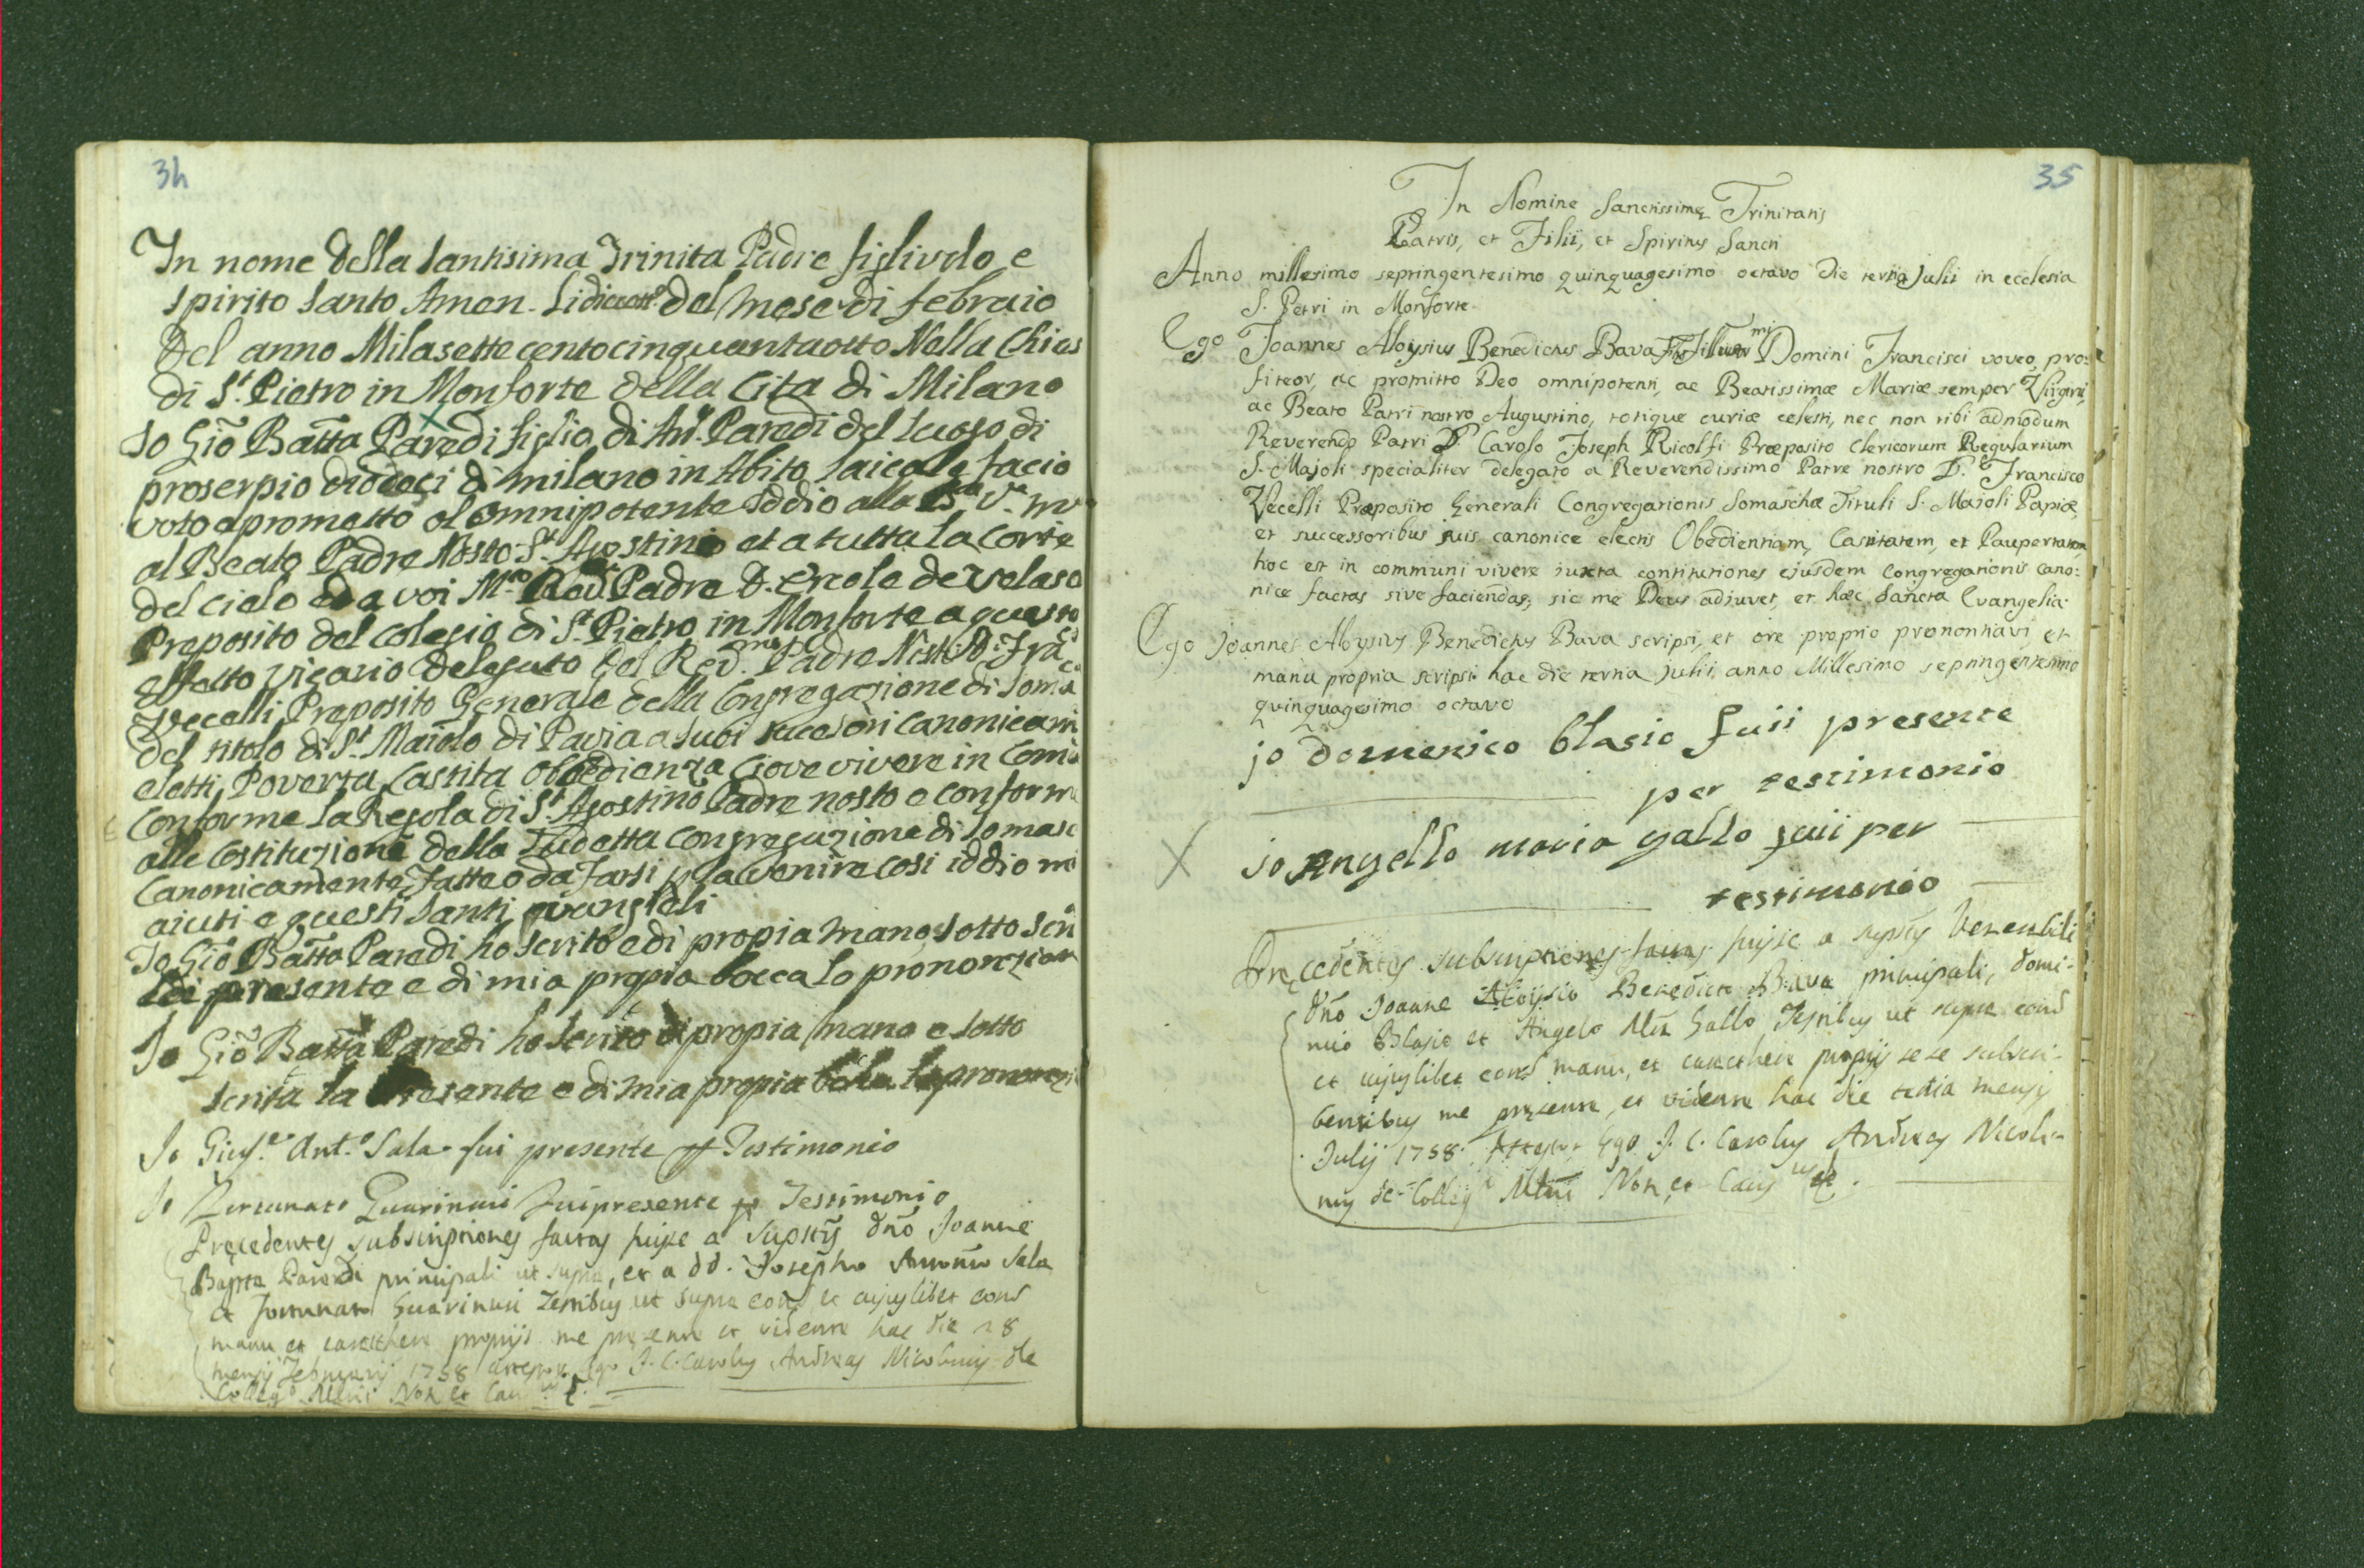 34
In nome della Santisima Trinita Padre figliuolo e
Spirito Santo Amen. del Mese di febraio
Del anno Milasettecentocinquantaotto Nella Chies
di St. Pietro in Monforte della Cita di Milano
Io Gio Batta Paredi figlio di Paredi del luogo di
proserpio di milano in Abito laicale facio
voto e prometto al Omnipotente Iddio alla
al Beato Padre Nosto St. Agostino et a tutta la Corte
del cielo ed a voi M.to Red. Padre D. Ercole de Velaso
Preposito del Colegio di St. Pietro in Monforte a questo
effetto vicario delegato del Red.mo Padre Nost. D. Fra
Vecelli Preposito Generale della Congregazione di Soma
del titolo di St. Maiolo di Pavia a suoi sucesori canonicam
eletti, Poverta, Castita Obbedienza Ciove vivere in Com
Conforme la Regola di St. Agostino Padre nosto e conform
alle Costituzione della Sudetta congregazione di Somasc
Canonicamente, Fatte o da Farsi p la venire cosi iddio mi
aiuti e questi Santi evangieli
Io Gio Batta Paredi ho scrito e di propia mano sotto scri
presente e di mia propia bocca lo prononzian
Io Gio Batta Paredi ho scrito di propia mano e sotto
scrita la Presente e di mia propia
Io Gius.e Ant.o Sala fui presente p Testimonio
Io Fortunato Guarinoni Fui presente p Testimonio
Precedentes subscriptiones factas fuisse a Supstis dno Joanne
Bapta Paredi principali ut supra, et a dd. Josepho Antonio Sala
et Fortunato Guarinoni Testibus ut supra eord et cujuslibet eord
manu et caracthere proprijs me presente et vidente hac die 18
mensis Februarij 1758 attestor Ego J. C. Carolus Andreas Nicolinus de
Colleg.o Mlni Not. et Caus
35
In Nomine Sanctissimę Trinitatis
Patris, et Filii, et Spiritus Sancti
Anno millesimo septingentesimo quinquagesimo octavo die tertia Julii in ecclesia
S. Petri in Monforte
Ego Joannes Aloysius Benedictus Bava Domini Francisci voveo, pro:
fiteor, ac promitto Deo omnipotenti, ac Beatissimæ Mariæ semper Virgini,
ac Beato Patri nostro Augustino, totique curiæ celesti, nec non tibi admodum
Reverendo Patri D. Carolo Joseph Ricolfi Præposito Clericorum Regularium
S. Majoli specialiter delegato a Reverendissimo Patre nostro D. Francisco
Vecelli Præposito Generali Congregationis Somaschæ Tituli S. Majoli Papiæ,
et successoribus suis canonice electis Obedientiam, Castitatem, et Paupertatem
hoc est in communi vivere iuxta contitutiones ejusdem Congregationis cano:
nice factas sive faciendas, sic me Deus adiuvet, et hæc Sancta Evangelia.
Ego Joannes Aloysius Benedictus Bava scripsi, et ore proprio prononttavi, et
manu propria scripsi hac die tertia Julii anno Millesimo septingentesimo
quinquagesimo octavo
jo domenico blasio fuii presente
per testimonio
io Angello maria gallo fuii per
testimonio
Precedentes subscriptiones factas fuisse a supstis Venerabili
dno Joanne Aloysio Benedicto Bava principali, domi-
nico Blasio et Angelo Mra Gallo Testibus ut supra eord
et cujuslibet eord manu, et caracthere proprijs se se subscri-
bentibus me presente, et vidente hac die tertia mensis
Julij 1758. Attestor Ego J. C. Carolus Andreas Nicoli-
nus de Colleg.o Mlni Not. et Caus